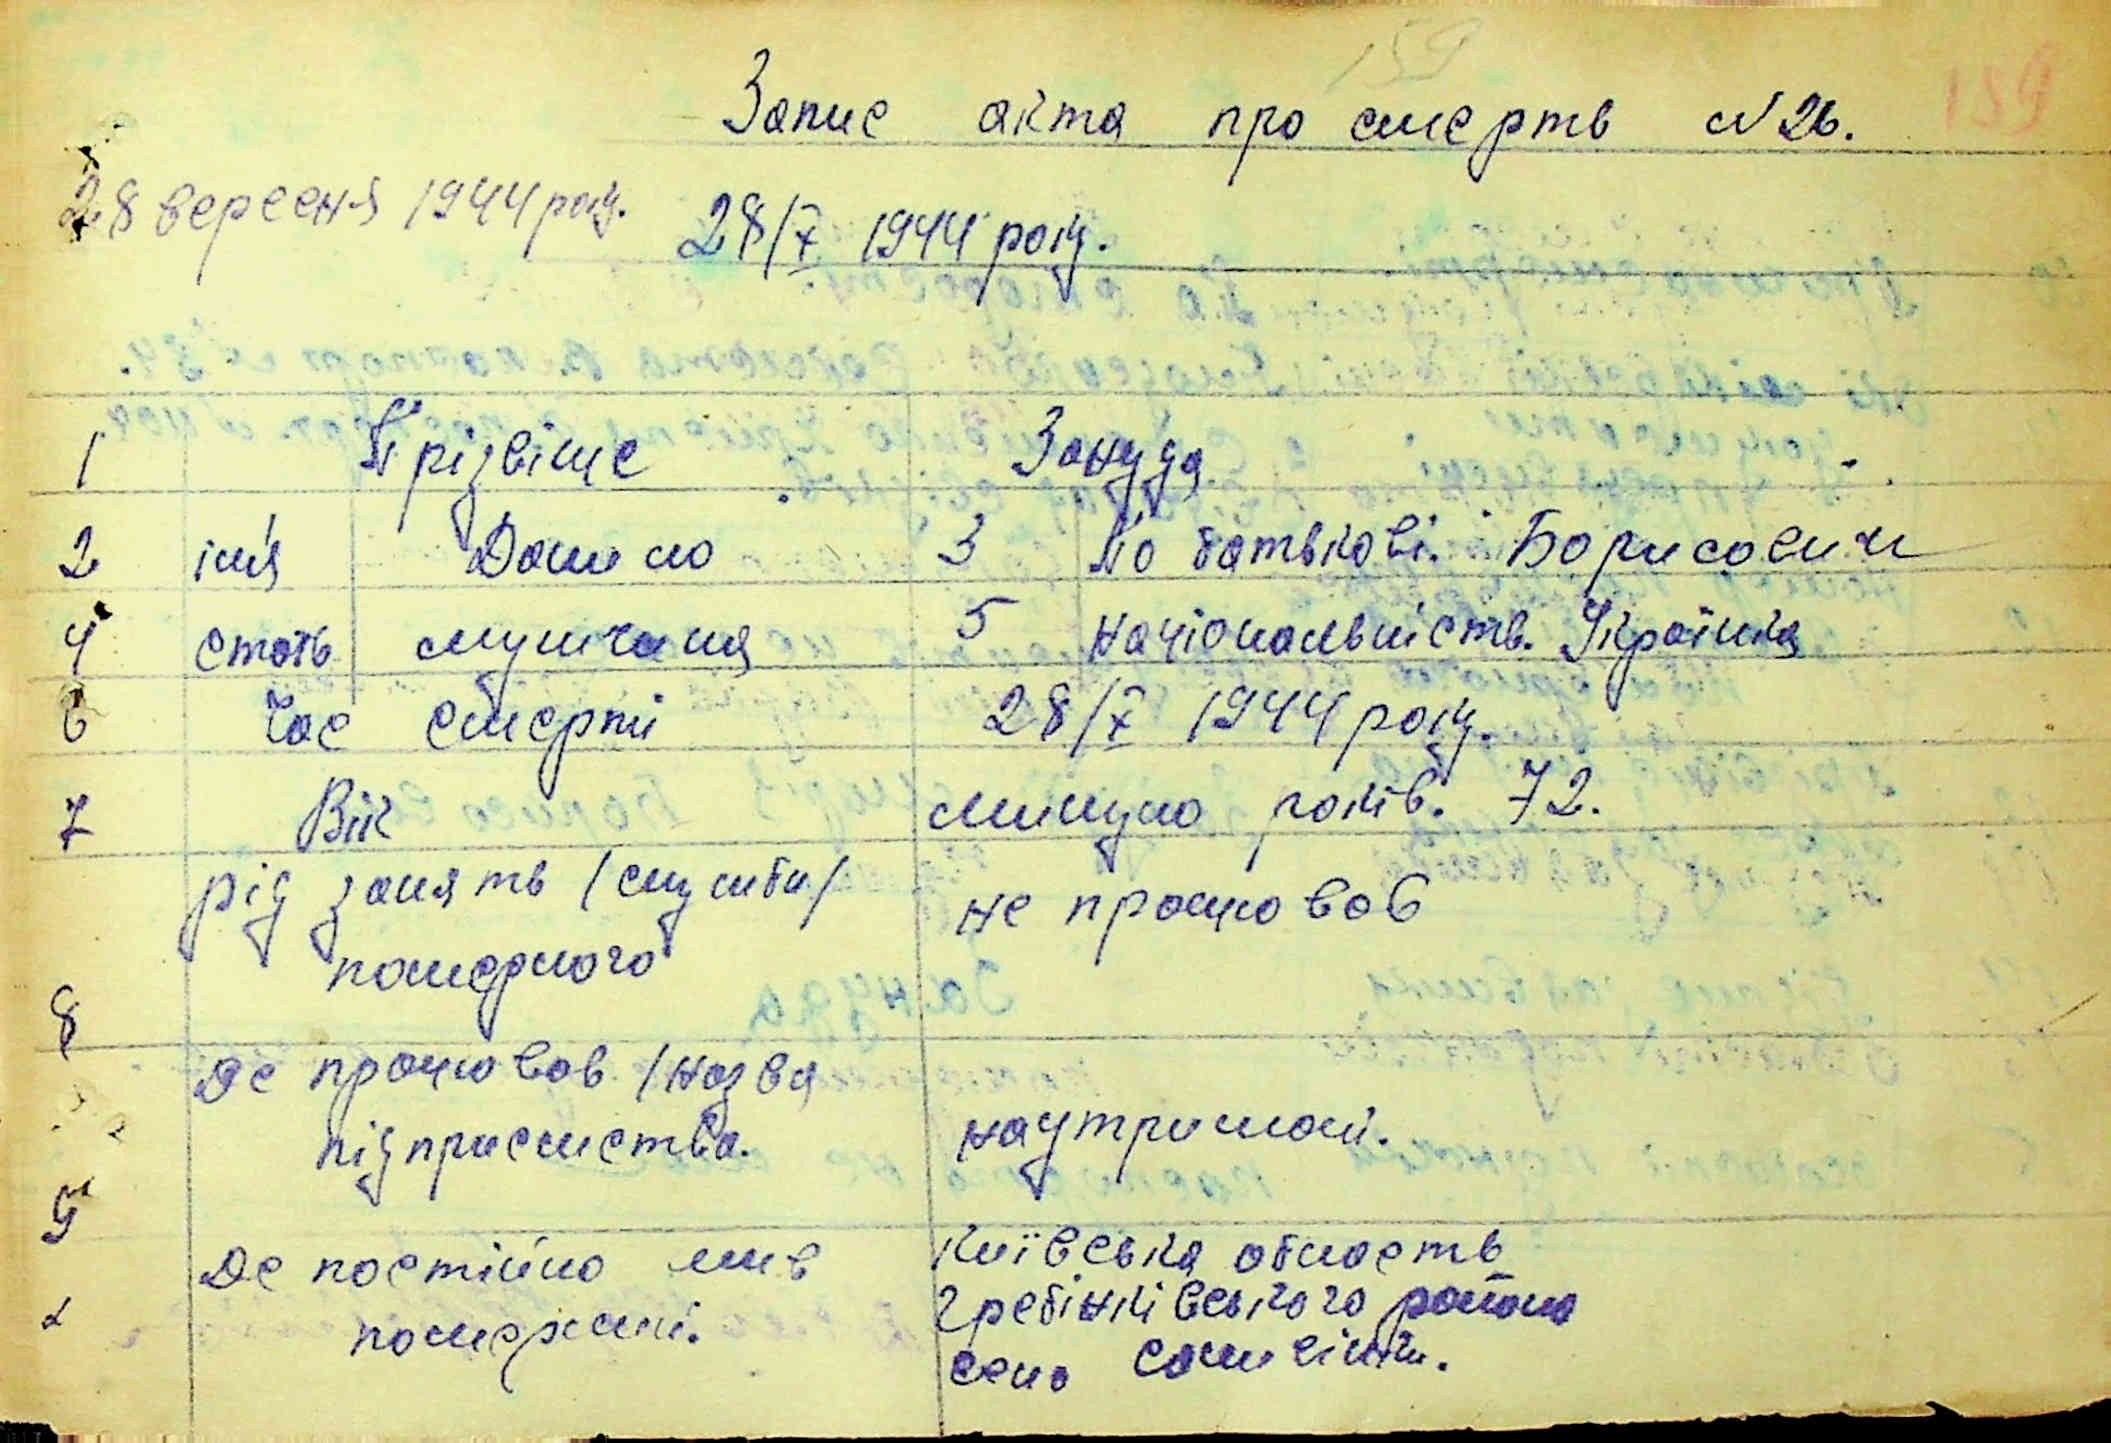 159
Запис акта про смерть N 26. 159
28 вересня 1944 року. 28/X 1944 року.
1 Прізвіще Зануда
2 імя Данило 3 По батькові. Борисович
4 стать мущчина 5 національність. Українка
6 Час смерті 28/X 1944 року.
7 Вік минуло років. 72.
рід занять /служби/ не працював
померлого
8
Де працював /назва
підприємства. наутримані.
9
Де постійно жив Київська область
померший. Гребінківського району
село